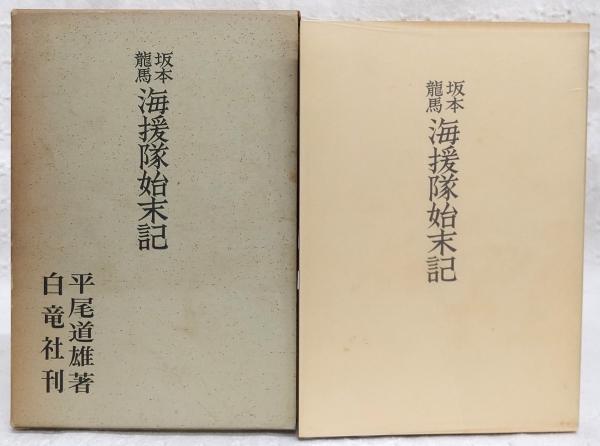 坂本
龍馬
海援隊始末記
平尾道雄著
白竜社刊
坂本
龍馬
海援隊始末記